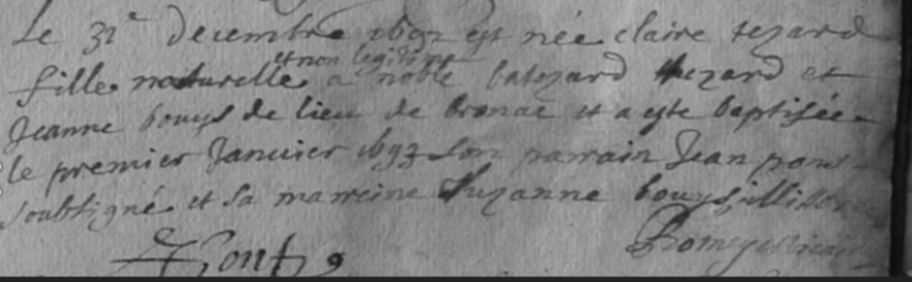 Le 31e decembre 1692 est née claire tezard
et non legitime
fille naturelle a noble batezard tezard et
Jeanne bouys de lieu de bronac et a este baptisée
le premier Januier 1693 son parrain Jean pons
soubsigné et sa marreine Suzanne bouys illitt